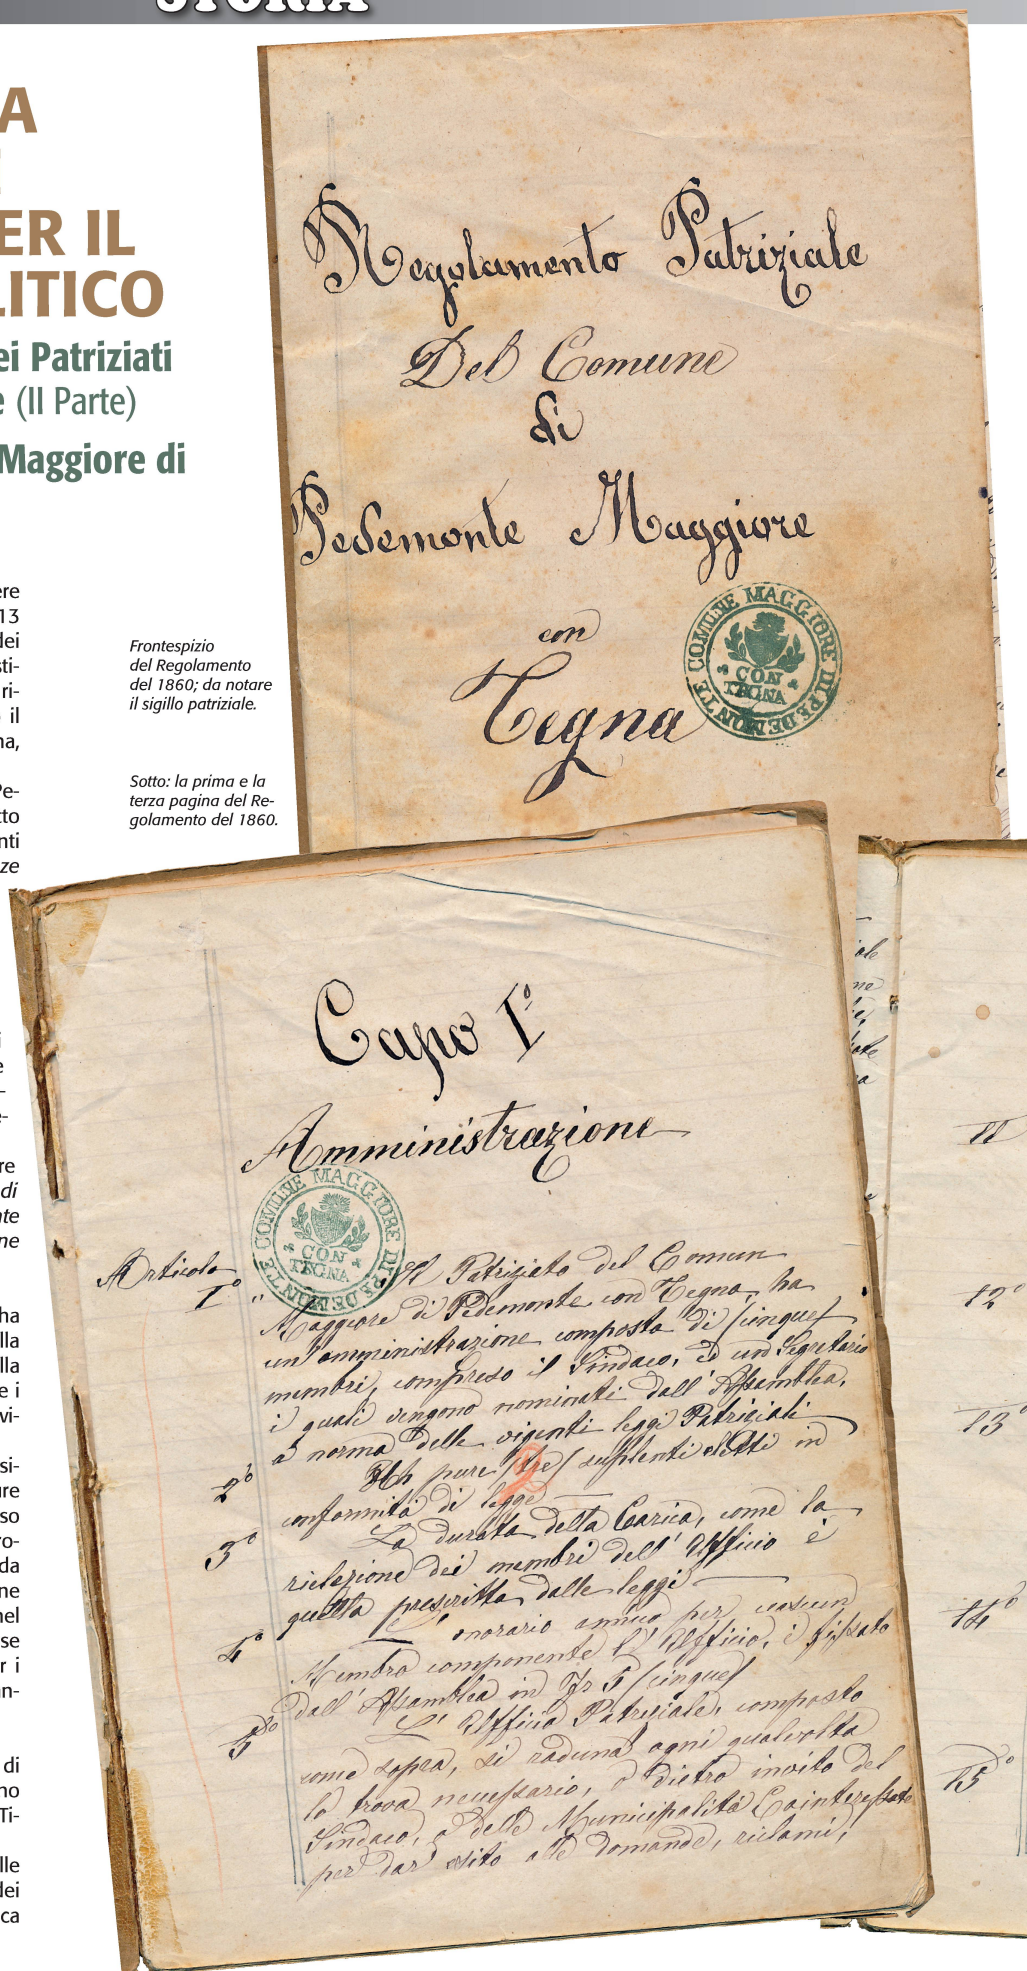 STORIA
A
ER IL
LITICO
ei Patriziati
e (II Parte)
Maggiore di
ere
13
dei
sti-
ri-
il
na,
Pe-
tto
nti
ze
Frontespizio
del Regolamento
del 1860; da notare
il sigillo patriziale.
Sotto: la prima e la
terza pagina del Re-
golamento del 1860.
Regolamento Patriziale
Del Comune
di
Pedemonte Maggiore
con
Tegna
COMUNE MAGGIORE DI PEDEMONTE
CON
TEGNA
i
e
-
e-
re
di
nte
ne
ha
lla
lla
e i
vi-
si-
ure
so
ro-
da
ne
nel
se
r i
an-
di
no
Ti-
lle
dei
ca
Capo I°
Amministrazione
COMUNE MAGGIORE DI PEDEMONTE
CON
TEGNA
Articolo
I° Il Patriziato del Comun
Maggiore di Pedemonte con Tegna, ha
un'amministrazione composta di /cinque/
membri, compreso il Sindaco, ed un Segretario
i quali vengono nominati dall'Assemblea,
a norma delle vigenti leggi Patriziali
2° pure /tre/ suplenti eletti in
conformità di legge
3° La durata della Carica, come la
rielezione dei membri dell'Ufficio è
quella prescritta dalle leggi
4° L'onorario annuo per ciascun
Membro componente l'Ufficio, è fissato
dall'Assemblea in Fr 5 /cinque/
5° L'Ufficio Patriziale, composto
come sopra, si raduna ogni qualvolta
lo trova necessario, o dietro invito del
Sindaco, o delle Municipalità Cointeressate
per dar esito alle domande, riclami,
11
12°
13°
14°
15°